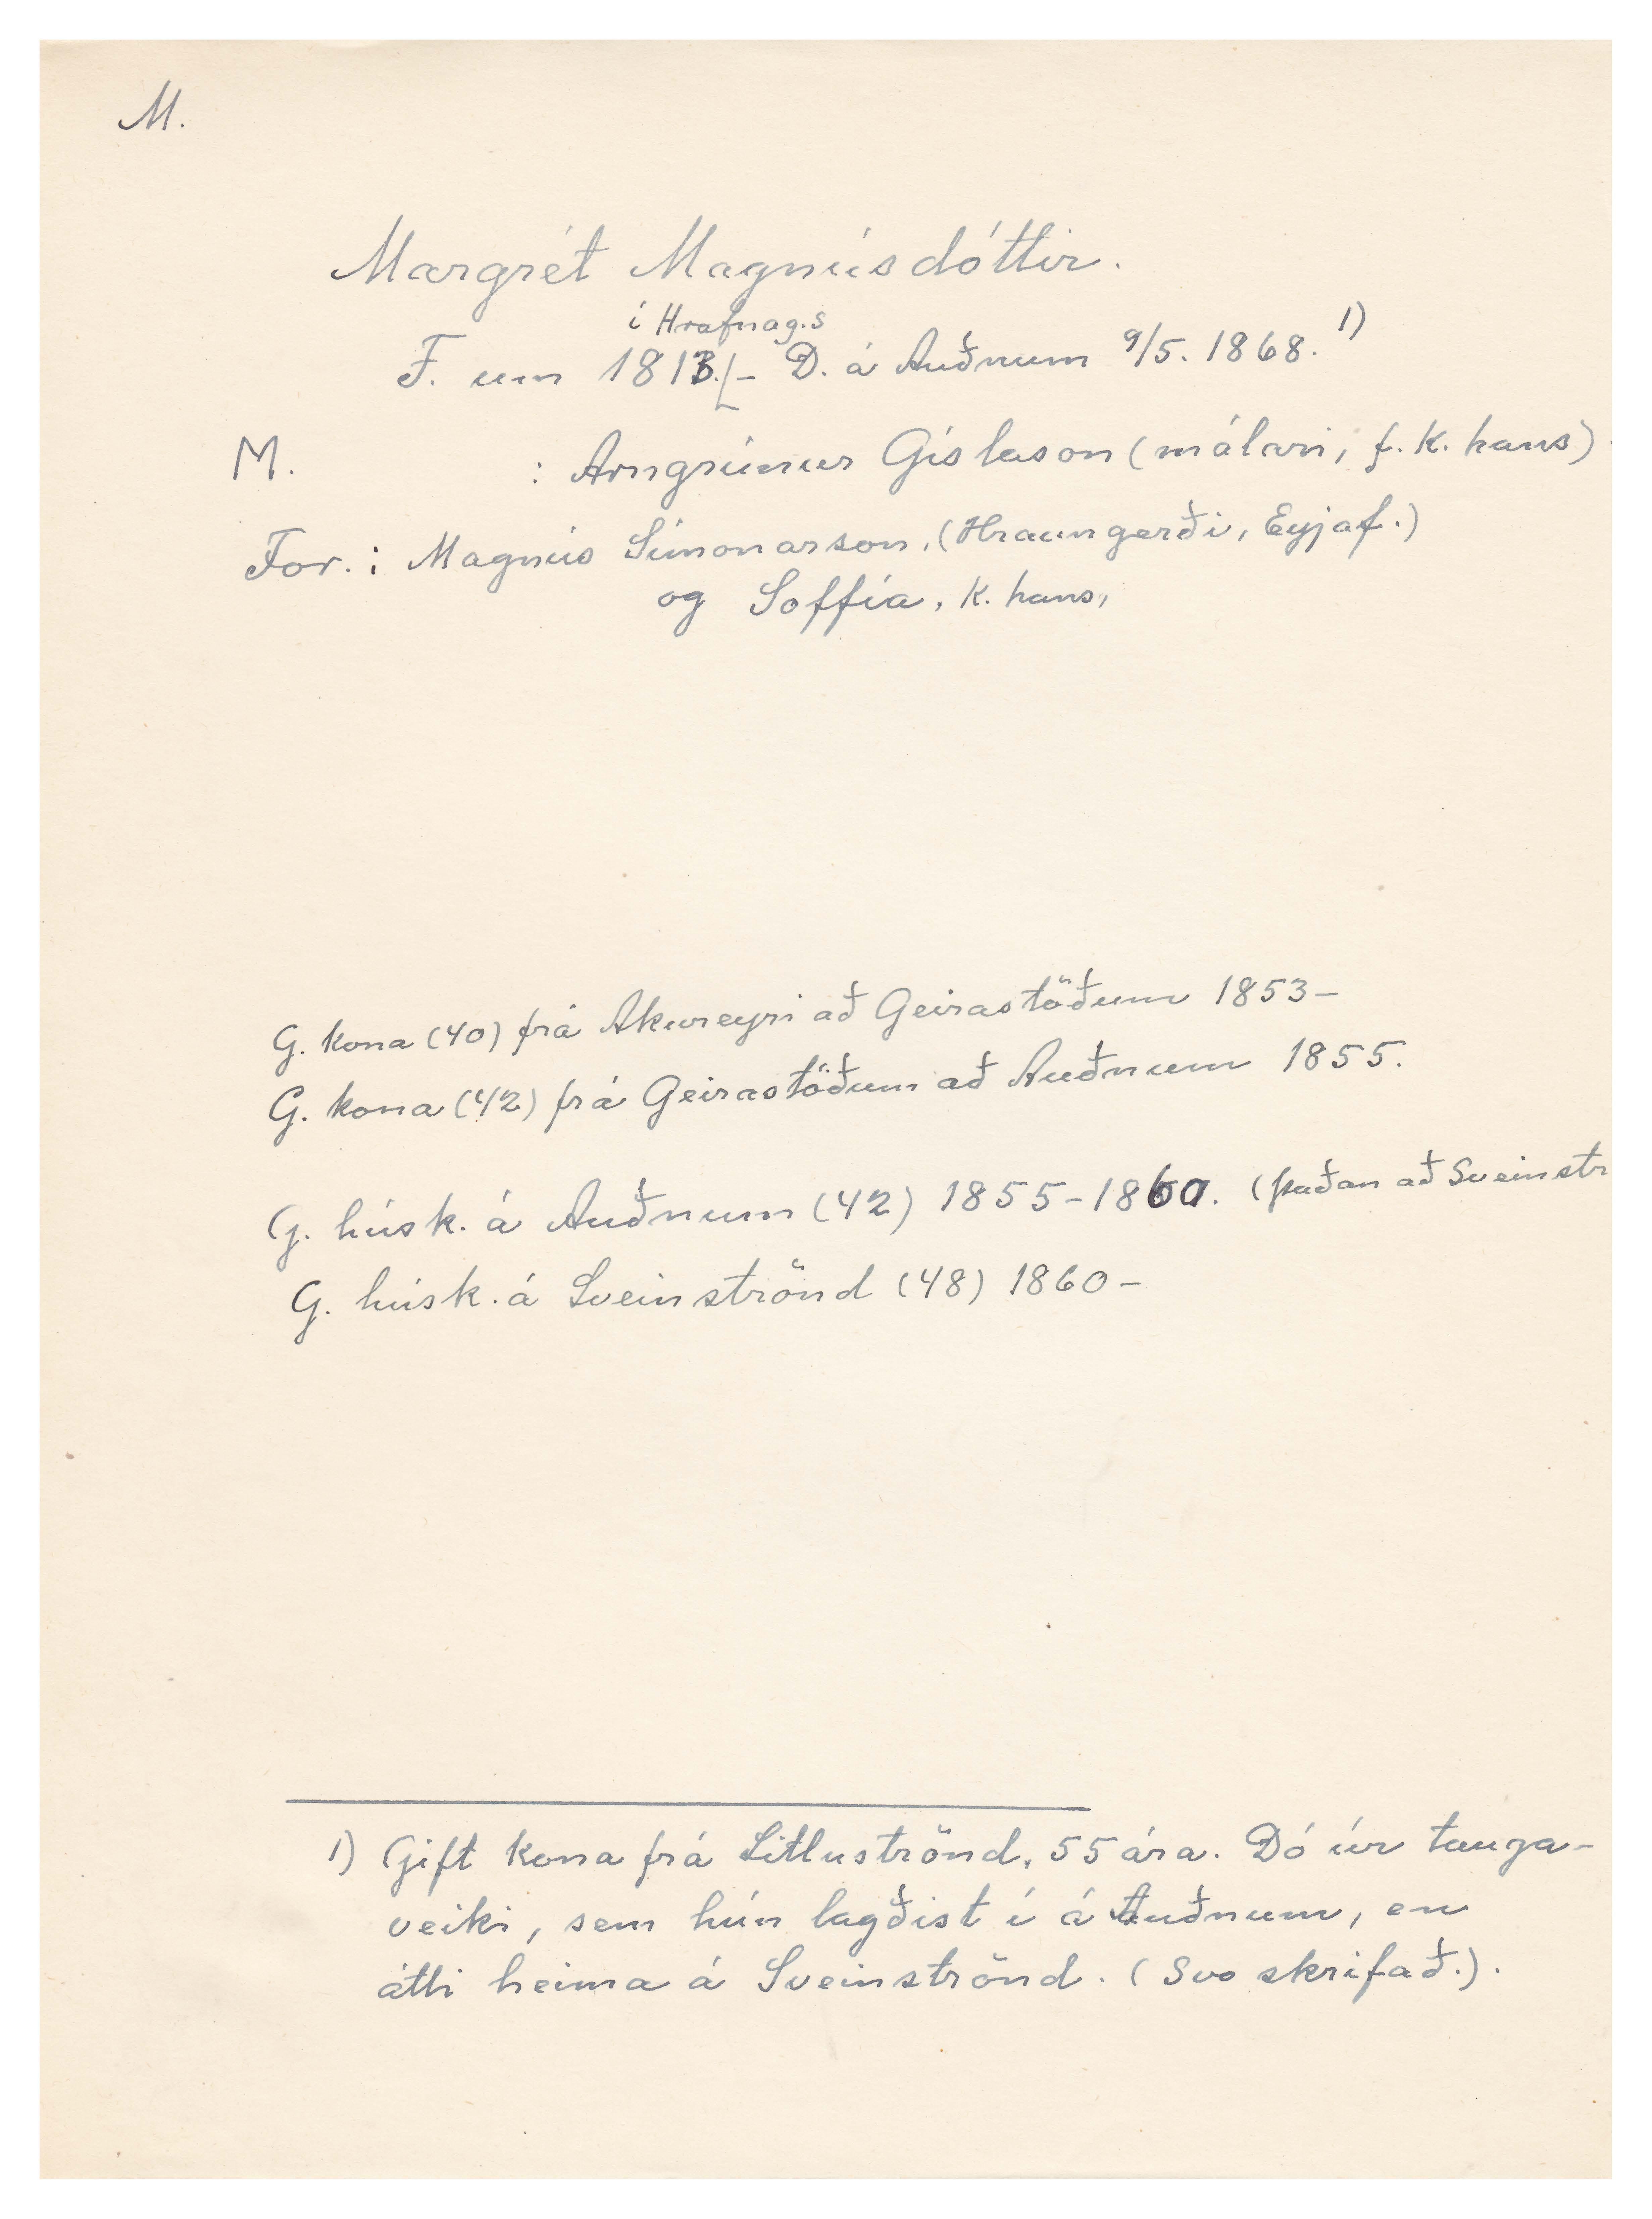 M.
Margrét Magnúsdóttir.
í Hrafnag.s
F. um 1813. – D. á Auðnum 9/5. 1868. 1)
M. : Arngrímur Gíslason (málari, f. k. hans).
For.: Magnús Símonarson, (Hraungerði, Eyjaf.)
og Soffía, k. hans,
G. kona (40) frá Akureyri að Geirastöðum 1853–
G. kona (42) frá Geirastöðum að Auðnum 1855.
G. húsk. á Auðnum (42) 1855-1860. (þaðan að Sveinstr
G. húsk. á Sveinströnd (48) 1860–
1) Gift kona frá Litluströnd, 55 ára. Dó úr tauga-
veiki, sem hún lagðist í á Auðnum, en
átti heima á Sveinströnd. (Svo skrifað.).